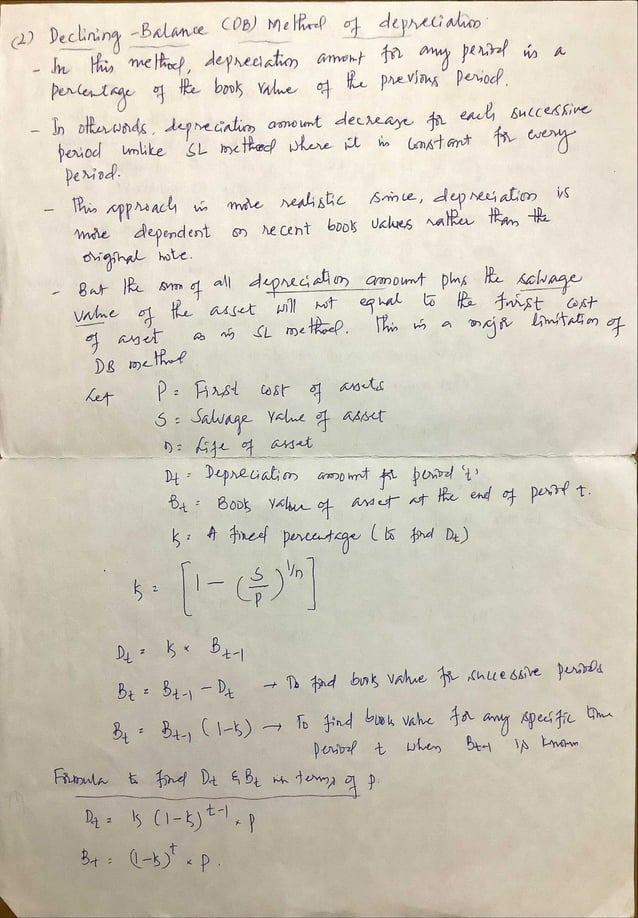 (2) Declining-Balance (DB) Method of depreciation
- In this method, depreciation amount for any period is a
percentage of the book value of the previous period.
- In other words, depreciation amount decrease for each successive
period unlike SL method where it is constant for every
period.
- This approach is more realistic since, depreciation is
more dependent on recent book values rather than the
original note.
- But the sum of all depreciation amount plus the salvage
value of the asset will not equal to the first cost
of asset as in SL method. This is a major limitation of
DB method
Let P = First cost of assets
S = Salvage value of asset
n = Life of asset
Dt = Depreciation amount for period 't'
Bt = Book value of asset at the end of period t.
k = A fixed percentage (to find Dt)
k = [1 - (S/P)^1/n]
Dt = k × Bt-1
Bt = Bt-1 - Dt → To find book value for successive periods
Bt = Bt-1 (1-k) → To find book value for any specific time
period t when Bt-1 is known
Formula to find Dt & Bt in terms of P.
Dt = k (1-k)^t-1 × P
Bt = (1-k)^t × P.